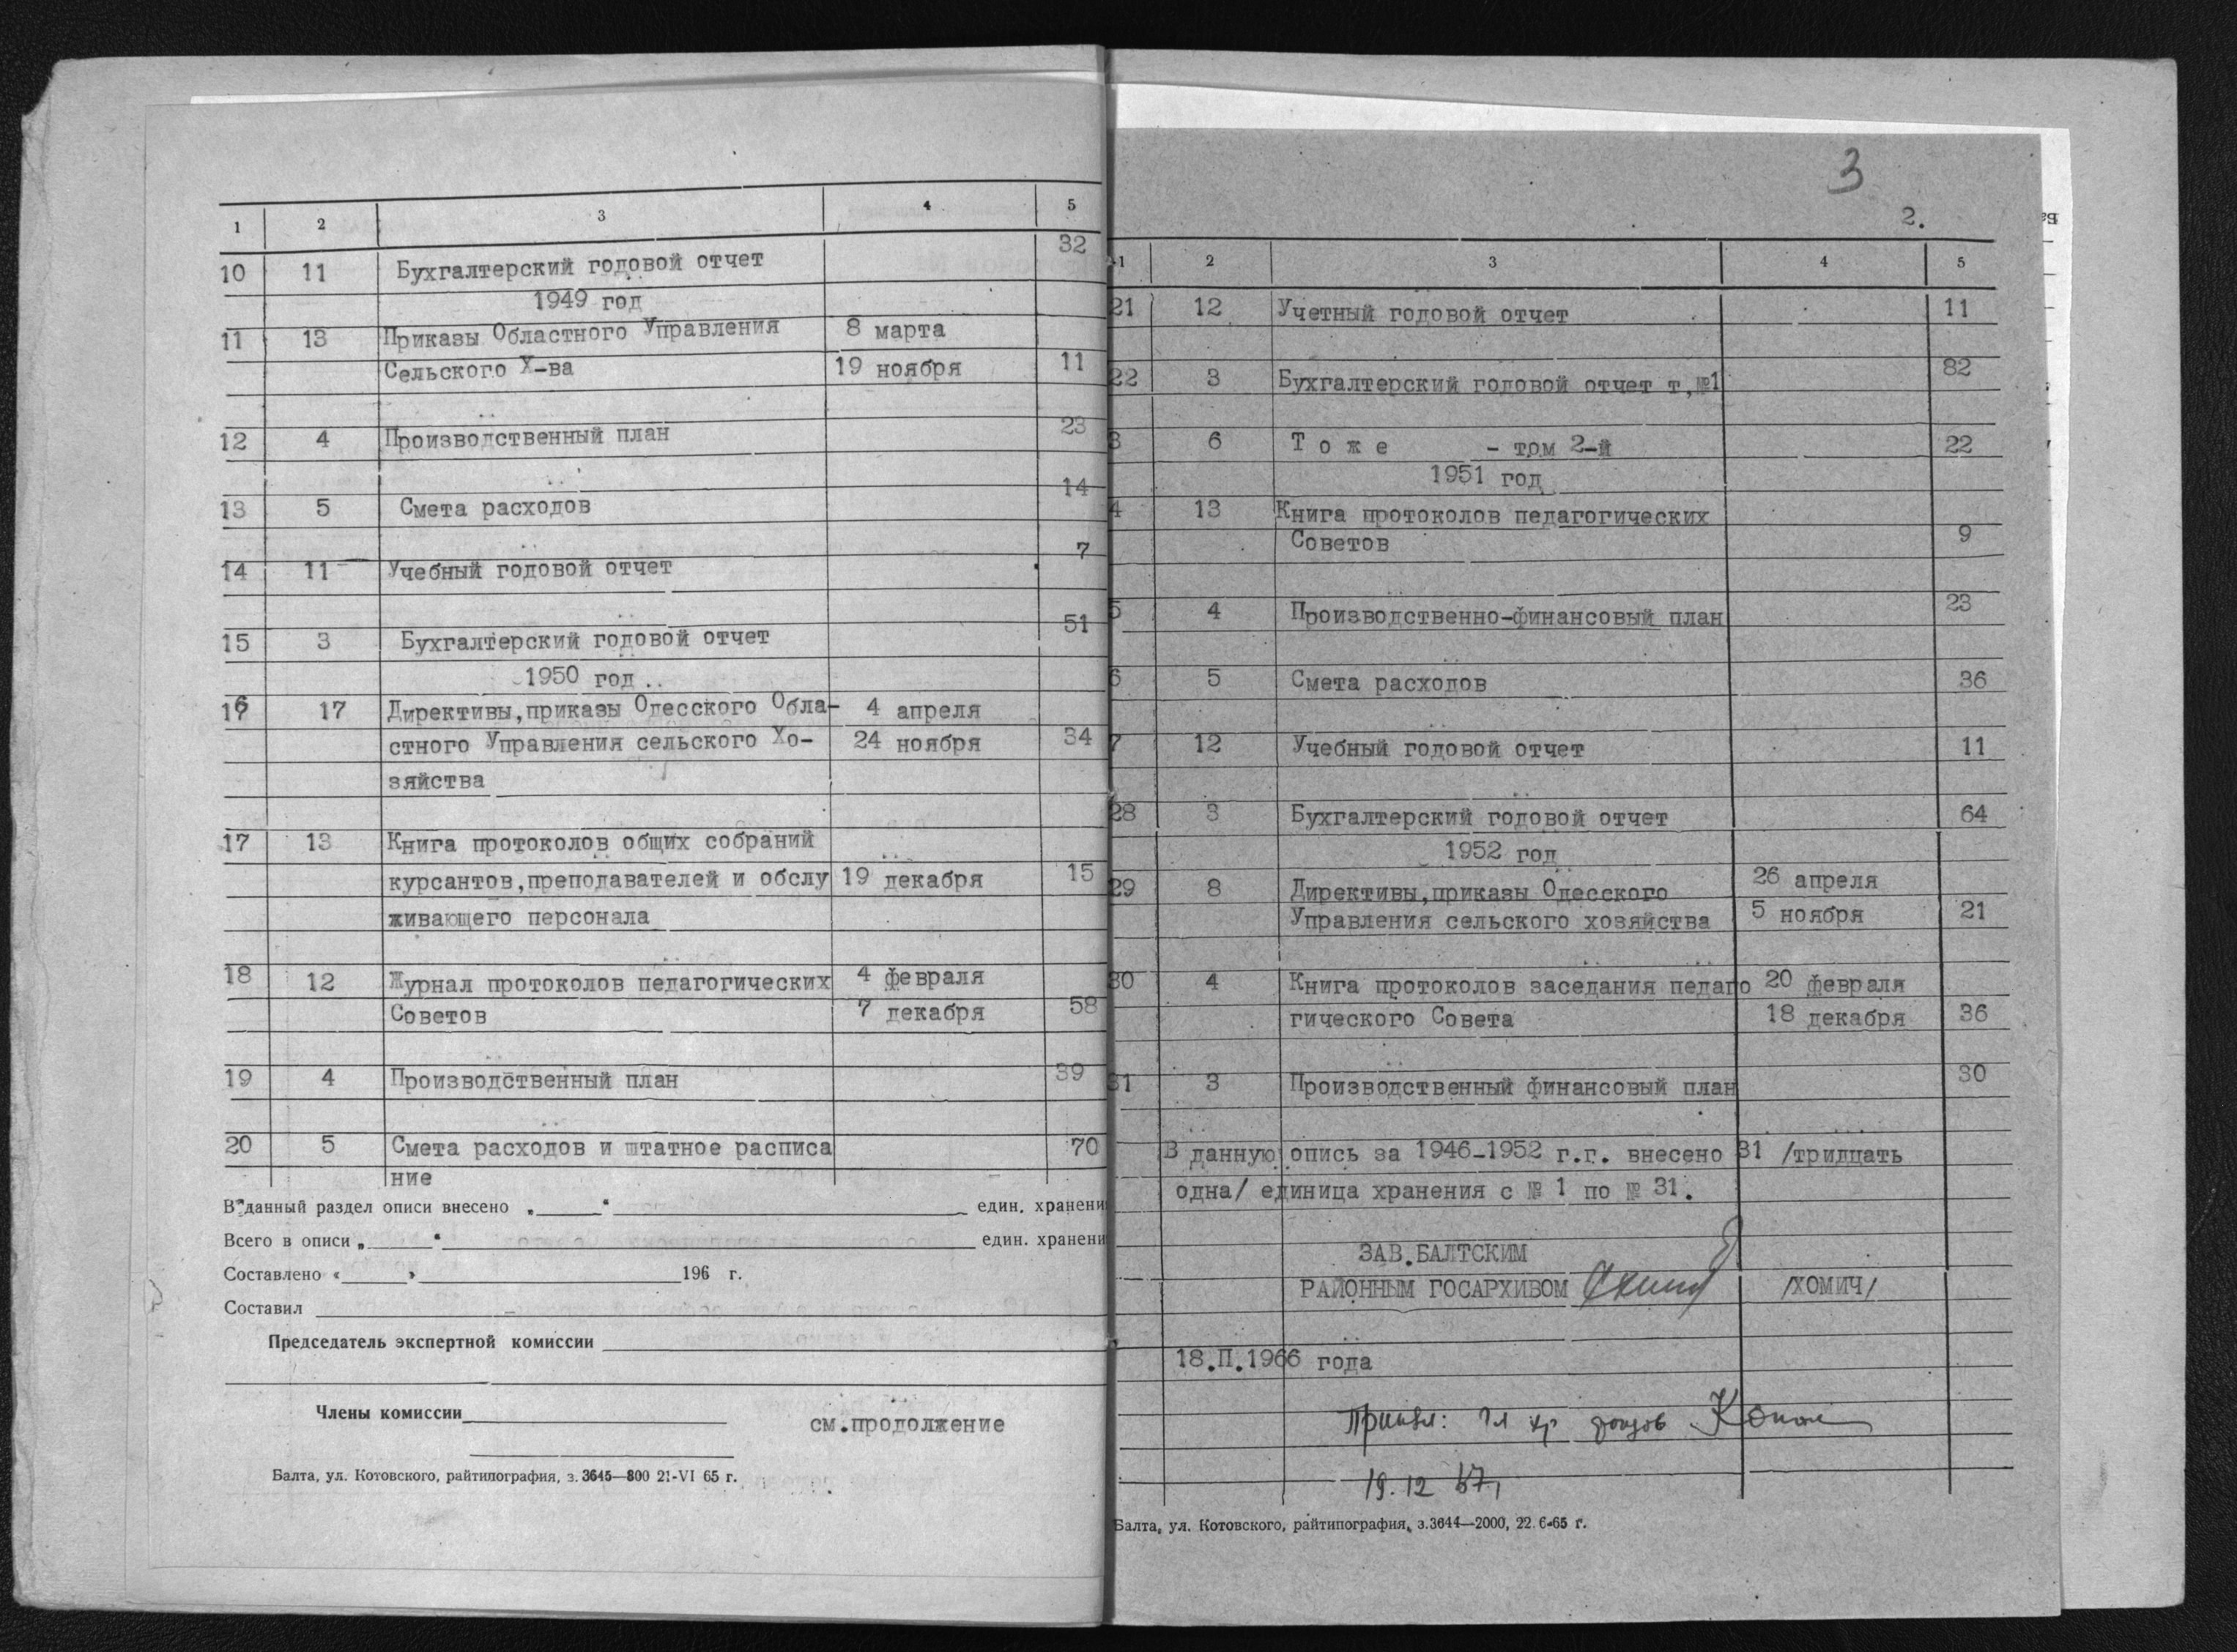 1 2 3 4 5
10 11 Бухгалтерский годовой отчет 32
1949 год
11 13 Приказы Областного Управления 8 марта
Сельского Х-ва 19 ноября 11
12 4 Производственный план 23
13 5 Смета расходов 14
14 11 Учебный годовой отчет 7
15 3 Бухгалтерский годовой отчет 51
1950 год
16 17 Директивы,приказы Одесского Обла- 4 апреля
стного Управления сельского Хо- 24 ноября 34
зяйства
17 13 Книга протоколов общих собраний
курсантов,преподавателей и обслу 19 декабря 15
живающего персонала
18 12 Журнал протоколов педагогических 4 февраля
Советов 7 декабря 58
19 4 Производственный план 39
20 5 Смета расходов и штатное расписа 70
ние
В данный раздел описи внесено „ “ един. хранени
Всего в описи „ “ един. хранени
Составлено « » 196 г.
Составил
Председатель экспертной комиссии
Члены комиссии
см.продолжение
Балта, ул. Котовского, райтипография, з. 3645—800 21-VI 65 г.
3
2.
1 2 3 4 5
21 12 Учетный годовой отчет 11
22 3 Бухгалтерский годовой отчет т,№1 82
3 6 Т о ж е - том 2-й 22
1951 год
4 13 Книга протоколов педагогических
Советов 9
5 4 Производственно-финансовый план 23
6 5 Смета расходов 36
7 12 Учебный годовой отчет 11
28 3 Бухгалтерский годовой отчет 64
1952 год
29 8 Директивы,приказы Одесского 26 апреля
Управления сельского хозяйства 5 ноября 21
30 4 Книга протоколов заседания педаго 20 февраля
гического Совета 18 декабря 36
31 3 Производственный финансовый план 30
В данную опись за 1946-1952 г.г. внесено 31 /тридцать
одна/ единица хранения с № 1 по № 31.
ЗАВ.БАЛТСКИМ
РАЙОННЫМ ГОСАРХИВОМ /ХОМИЧ/
18.II.1966 года
19.12 67
Балта, ул. Котовского, райтипография, з.3644—2000, 22.6-65 г.